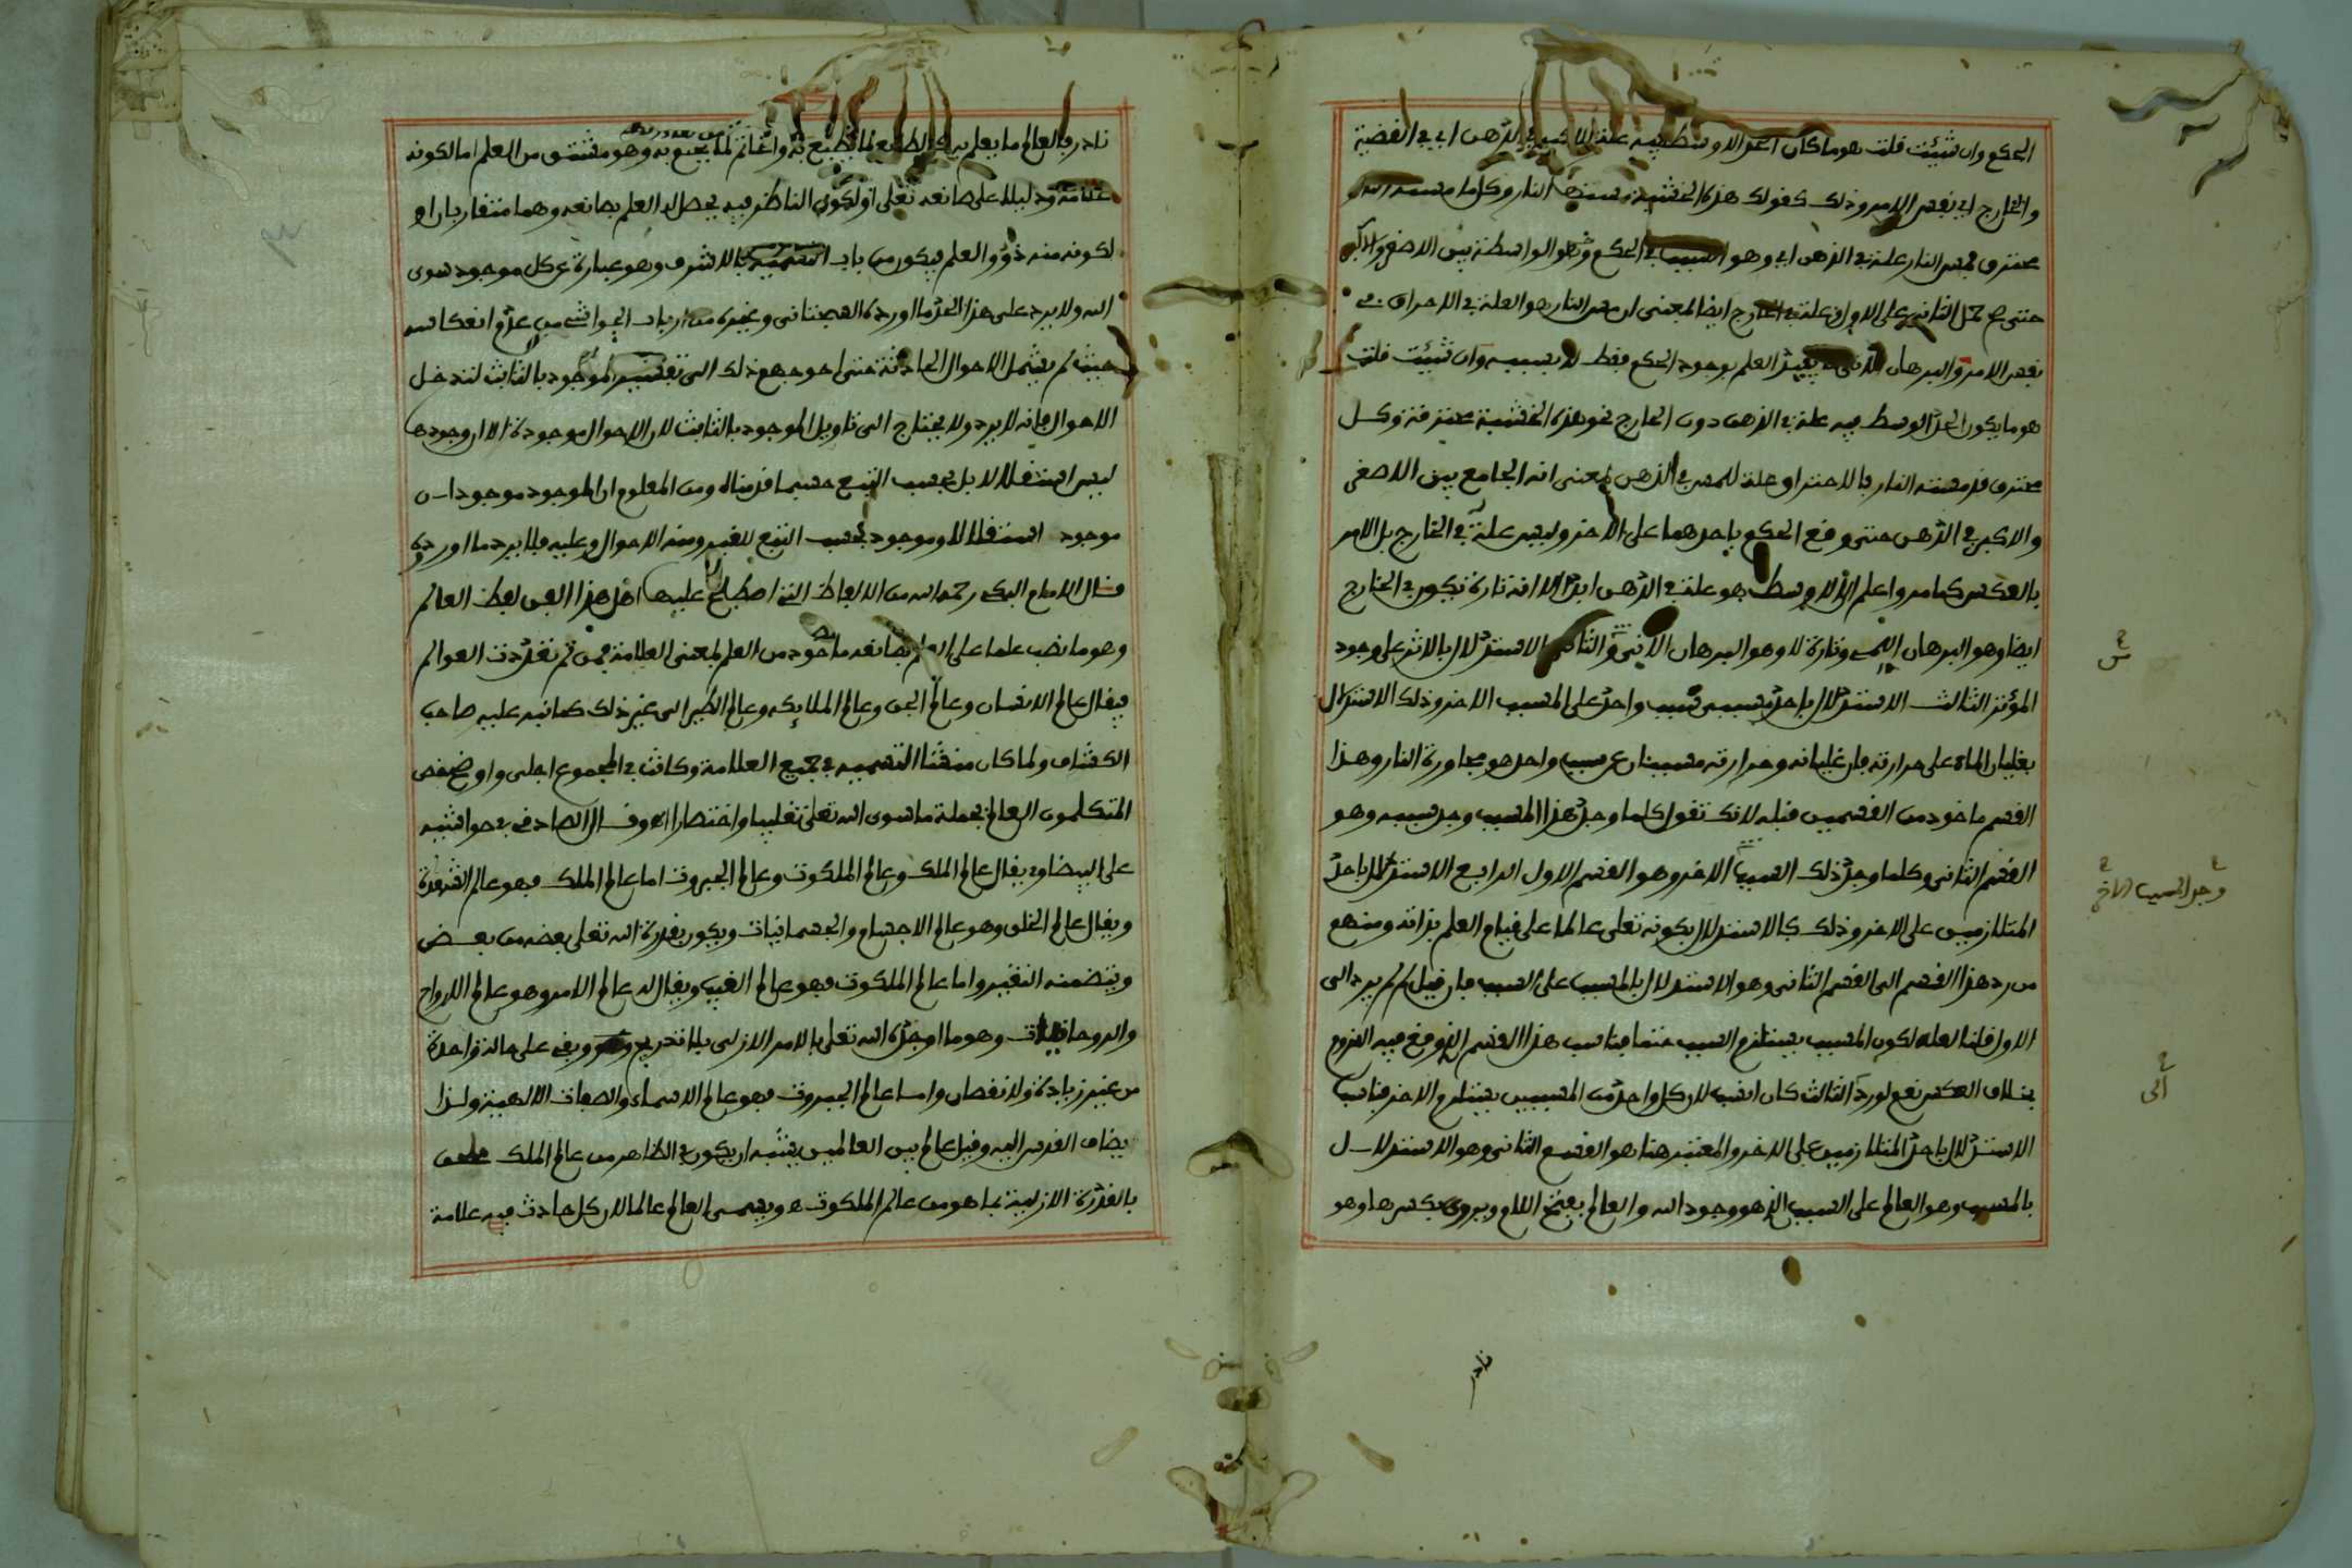 الحكم وان شئت قلت هو ما كان الحد الاوسط فيه علة للاكبر في الذهن اي في القضية
والخارج اي نفس الامر وذلك كقولك هذه الخشبة مستها النار وكل ما مسته النار
محترق فمس النار علة في الذهن اي وهو السبب في الحكم وهو الواسطة بين الاصغر والاكبر
حتى صح حمل الثاني على الاول وعلة في الخارج ايضا بمعنى ان مس النار هو العلة في الاحراق في
نفس الامر والبرهان الاني يفيد العلم بوجود الحكم فقط لا بسببه وان شئت قلت
هو ما يكون الحد الوسط فيه علة في الذهن دون الخارج نحو هذه الخشبة محترقة وكل
محترق قد مسته النار فالاحتراق علة للمس في الذهن بمعنى انه الجامع بين الاصغر
والاكبر في الذهن حتى وقع الحكم باحدهما على الاخر وليس علة في الخارج بل الامر
بالعكس كما مر واعلم ان الاوسط هو علة في الذهن ابدا الا انه تارة يكون في الخارج
ايضا وهو البرهان اللمي وتارة لا وهو البرهان الاني والثاني الاستدلال بالاثر على وجود
المؤثر الثالث الاستدلال باحد مسببي سبب واحد على المسبب الاخر وذلك الاستدلال
بغليان الماء على حرارته فان غليانه وحرارته مسببان عن سبب واحد هو مجاورة النار وهذا
القسم ماخوذ من القسمين قبله لانك تقول كلما وجد هذا المسبب وجد سببه وهو
القسم الثاني وكلما وجد ذلك السبب الاخر وهو القسم الاول الرابع الاستدلال باحد
المتلازمين على الاخر وذلك كالاستدلال بكونه تعلى عالما على قيام العلم بذاته ومنهم
من رد هذا القسم الى القسم الثاني وهو الاستدلال بالمسبب على السبب فان قيل لم لم يرد الى
الاول قلنا لعله لكون المسبب يستلزم السبب حتما فناسب هذا القسم الذي وقع فيه اللزوم
بخلاف العكس نعم لو رد الثالث كان انسب لان كل واحد من المسببين يستلزم الاخر فناسب
الاستدلال باحد المتلازمين على الاخر والمعتبر هنا هو القسم الثاني وهو الاستدلال
بالمسبب وهو العالم على السبب الذي هو وجود الله والعالم بفتح اللام ويروى بكسرها وهو
س
وجد المسبب الاخر
الى
نادر
نادر فالعالم ما يعلم به كالطابع لما يطبع به والخاتم لما يختم به وهو مشتق من العلم اما لكونه
علامة ودليلا على صانعه تعلى او لكون الناظر فيه يحصل له العلم بصانعه وهما متقاربان او
لكونه منه ذوو العلم فيكون من باب التسمية بالاشرف وهو عبارة عن كل موجود سوى
الله ولا يرد على هذا الحد ما اورده السجتاني وغيره من ارباب الحواشي من عدم انعكاسه
حيث لم يشمل الاحوال الحادثة حتى احوجهم ذلك الى تفسير الموجود بالثابت لتدخل
الاحوال فانه لا يرد ولا يحتاج الى تاويل الموجود بالثابت لان الاحوال موجودة الا ان وجودها
ليس استقلالا بل بحسب التبع حسبما قدمناه ومن المعلوم ان الموجود موجودان
موجود استقلالا وموجود بحسب التبع للغير ومنه الاحوال وعليه فلا يرد ما اوردوه
قال الامام البكي رحمه الله من الالفاظ التي اصطلح عليها اهل هذا الفن لفظ العالم
وهو ما نصب علما على العلم بصانعه ماخوذ من العلم بمعنى العلامة فمن ثم تعددت العوالم
فيقال عالم الانسان وعالم الجن وعالم الملايكه وعالم الطير الى غير ذلك كما نبه عليه صاحب
الكشاف ولما كان منشا التسميه في جميع العلامة وكانت في المجموع اجلى واوضح خص
المتكلمون العالم بجملة ما سوى الله تعلى تغليبا واختصارا وقال الصادفي في حواشيه
على البيضاوي يقال عالم الملك وعالم الملكوت وعالم الجبروت اما عالم الملك فهو عالم الشهدة
ويقال عالم الخلق وهو عالم الاجسام والجسمانيات ويكون بقدرة الله تعلى بعضه من بعض
ويتضمنه التغير واما عالم الملكوت فهو عالم الغيب ويقال له عالم الامر وهو عالم الارواح
والروحانيات وهو ما اوجده الله تعلى بالامر الازلي بلا تدريج وبقي على حالة واحدة
من غير زيادة ولا نقصان واما عالم الجبروت فهو عالم الاسماء والصفات الالهية ولذا
يضاف القدس اليه وقيل عالم بين العالمين يشبه ان يكون في الظاهر من عالم الملك
بالقدرة الازلية بما هو من عالم الملكوت ه ويسمى العالم عالما لان كل حادث فيه علامة